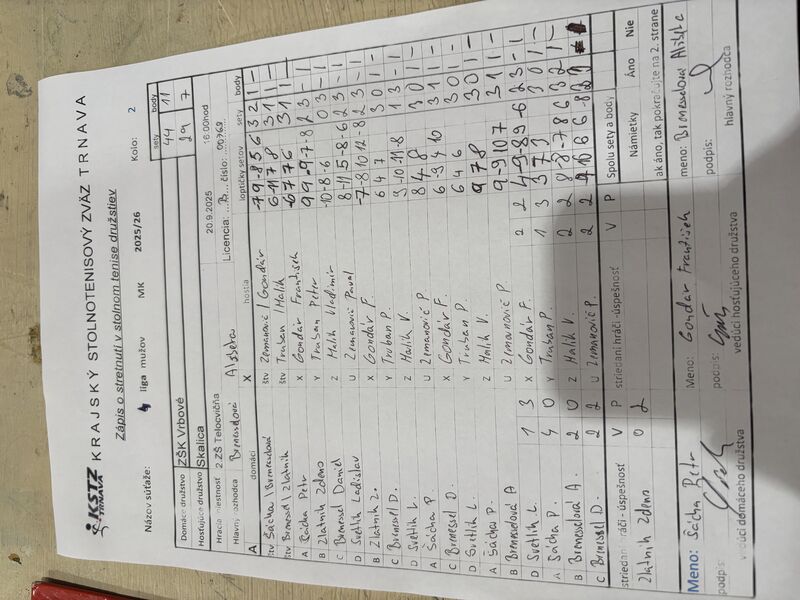 KSTZ TRNAVA KRAJSKÝ STOLNOTENISOVÝ ZVÄZ TRNAVA
Zápis o stretnutí v stolnom tenise družstiev
Názov súťaže: 4 liga mužov MK 2025/26 Kolo: 2
sety body
Domáce družstvo ZŠK Vrbové 44 11
Hosťujúce družstvo Skalica 29 7
Hracia miestnosť 2.ZŠ Telocvičňa 20.9.2025 16:00hod
Hlavný rozhodca Bremesselová Alžbeta Licencia: B číslo: 00768
A domáci X hostia loptičky setov sety body
štv Šácha / Bremesselová štv Zemanovič / Gondár -7 9 -8 5 6 3 2 1 -
štv Bremessel / Zlatník štv Truban / Halík 6 -11 7 8 3 1 1 -
A Šácha Petr X Gondár František -6 7 7 6 3 1 1 -
B Zlatník Zdeno Y Truban Peter 9 9 -9 7 -8 2 3 - 1
C Bremessel Daniel Z Halík Vladimír -10 -8 -6 0 3 - 1
D Svetlík Ladislav U Zemanovič Pavol 8 -11 5 -8 -6 2 3 - 1
B Zlatník Z. X Gondár F. -7 -8 10 12 -8 2 3 - 1
C Bremessel D. Y Truban P. 6 4 7 3 0 1 -
D Svetlík L. Z Halík V.
A Šácha P. U Zemanovič P. 8 4 8 3 0 1 -
C Bremessel D. X Gondár F. 6 -3 4 10 3 1 1 -
D Svetlík L. Y Truban P. 6 4 6 3 0 1 -
A Šácha P. Z Halík V. 9 7 8 3 0 1 -
B Bremesselová A U Zemanovič P. 9 -9 10 7 3 1 1 -
D Svetlík L. 1 3 X Gondár F. 2 2 4 -9 8 9 -6 2 3 - 1
A Šácha P. 4 0 Y Truban P. 1 3 3 7 3 0 1 -
B Bremesselová A. 2 0 Z Halík V. 2 2 8 8 -7 -8 6 3 2 1 -
C Bremessel D. 2 2 U Zemanovič P. 2 2
striedaní hráči -úspešnosť V P striedaní hráči -úspešnosť V P Spolu sety a body
Zlatník Zdeno 0 2 Námietky Áno Nie
ak áno, tak pokračujte na 2. strane
Meno: Šácha Petr Meno: Gondár František meno: Bremesselová Alžbeta
podpis: podpis: podpis:
vedúci domáceho družstva vedúci hosťujúceho družstva hlavný rozhodca